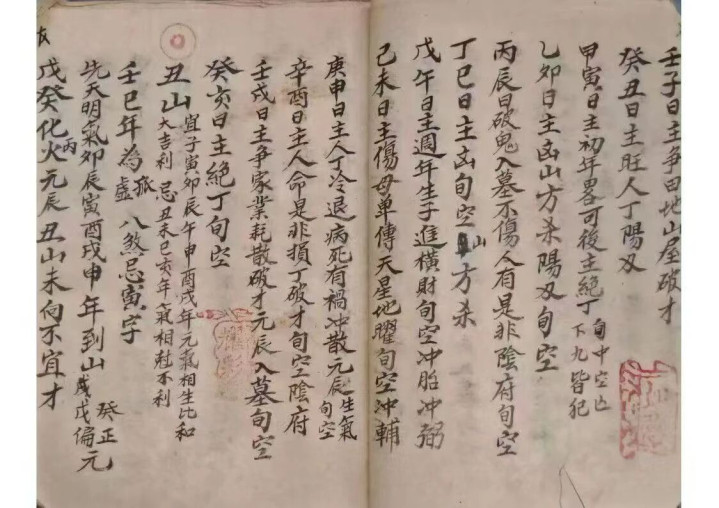 壬子日主争田地山屋破才
癸丑日主旺人丁陽刄
甲寅日主初年畧可後主絶丁旬中空亡下九皆犯
乙卯日主凶山方杀陽刄旬空
丙辰日破鬼入墓不傷人有是非陰府旬空
丁巳日主凶旬空山方杀
戊午日主週年生子進横財旬空冲胎冲弼
己未日主傷母单傳天星地曜旬空冲輔
庚申日主人丁冷退病死有禍冲散元辰生氣旬空
辛酉日主人命是非損丁破才旬空陰府
壬戌日主争家業耗散破才元辰入墓旬空
癸亥日主絶丁旬空
丑山宜子寅卯辰午申酉戌年元氣相生比和
大吉利忌丑未巳亥年氣相尅不利
壬巳年為孤虚八煞忌寅字
先天明氣卯辰寅酉戌申年到山癸正戊偏元
戊癸化火丙元辰丑山未向不宜才